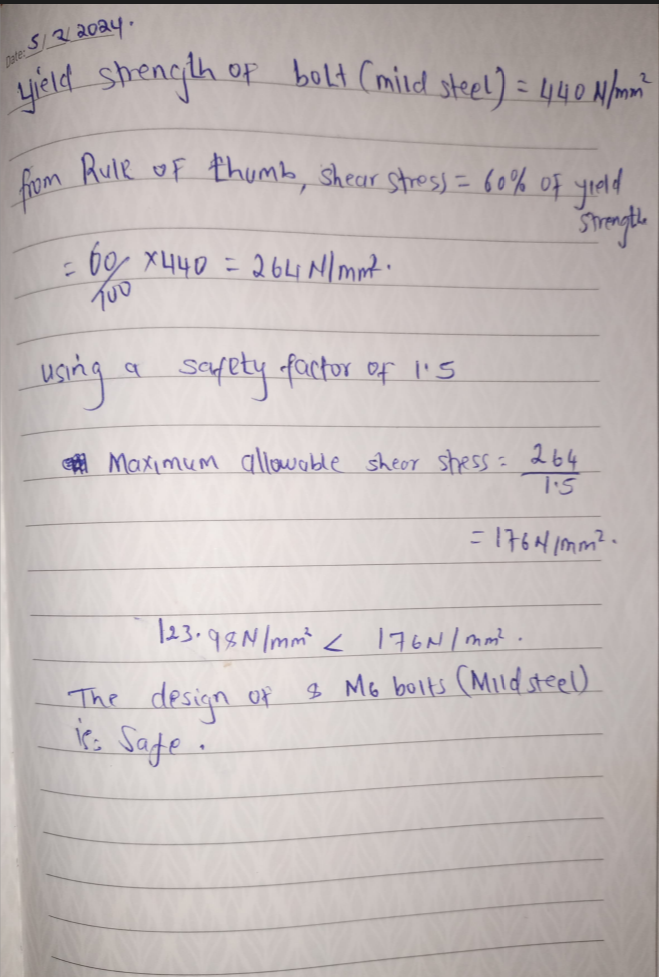 Date: 5/2/2024.
yield strength of bolt (mild steel) = 440 N/mm²
from Rule of thumb, shear stress = 60% of yield
strength
= 60/100 ×440 = 264 N/mm².
using a safety factor of 1.5
Maximum allowable shear stress = 264/1.5
= 176 N/mm².
123.98N/mm² < 176N/mm².
The design of 8 M6 bolts (Mild steel)
is: Safe.